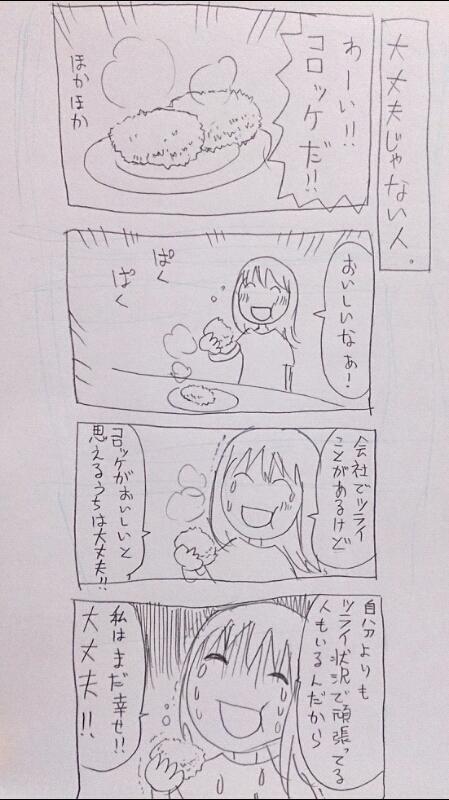 大丈夫じゃない人。
わーい!!
コロッケだ!!
ほかほか
おいしいなぁ!
ぱく
ぱく
会社でツライ
ことがあるけど
コロッケがおいしいと
思えるうちは大丈夫!!
自分よりも
ツライ状況で頑張ってる
人もいるんだから
私はまだ幸せ!!
大丈夫!!